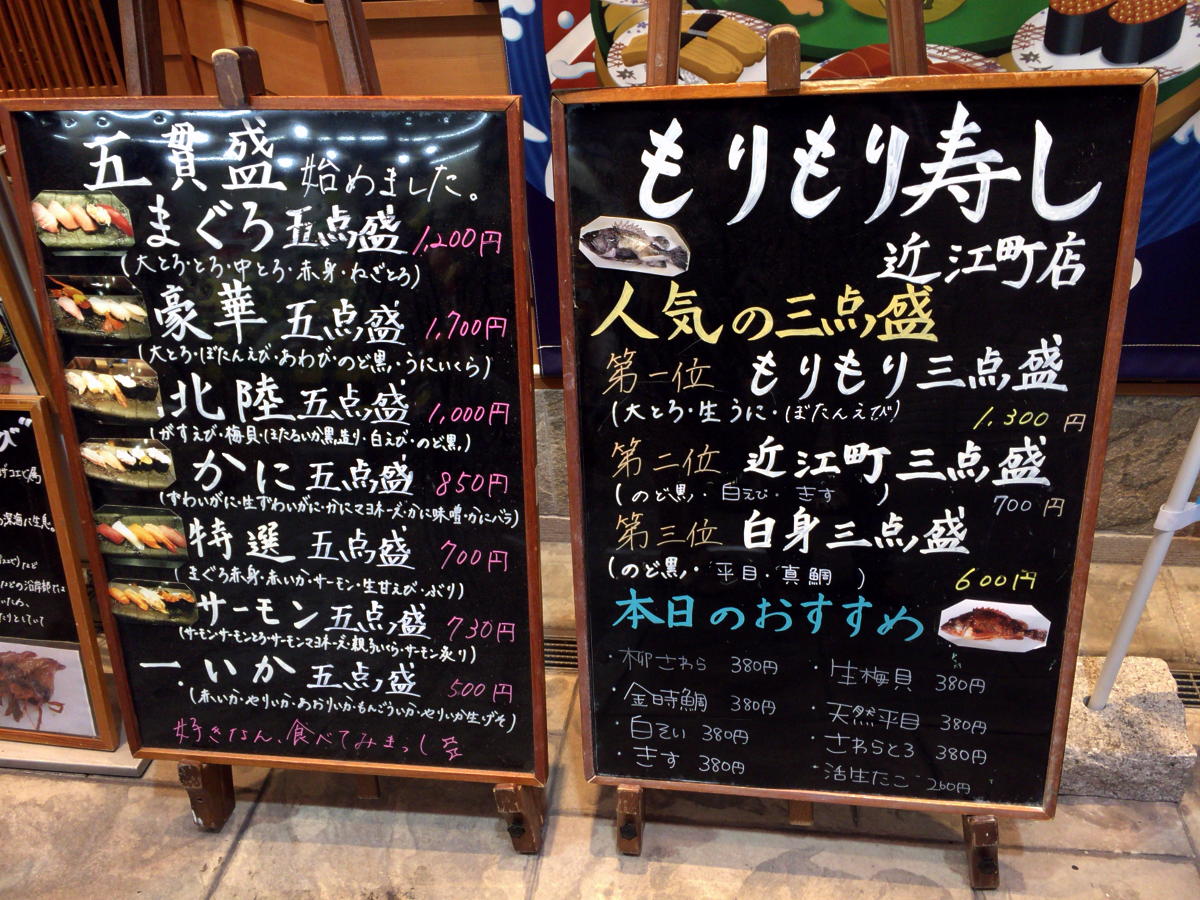 五貫盛 始めました。
まぐろ五点盛 1,200円
(大とろ・とろ・中とろ・赤身・ねぎとろ)
豪華 五点盛 1,700円
(大とろ・ぼたんえび・あわび・のど黒・うにいくら)
北陸 五点盛 1,000円
(がすえび・梅貝・ほたるいか黒造り・白えび・のど黒)
かに 五点盛 850円
(ずわいがに・生ずわいがに・かにマヨネーズ・かに味噌・かにバラ)
特選 五点盛 700円
(まぐろ赤身・赤いか・サーモン・生甘えび・ぶり)
サーモン 五点盛 730円
(サーモン・サーモンとろ・サーモンマヨネーズ・親子いくら・サーモン炙り)
一.いか 五点盛 500円
(赤いか・やりいか・あおりいか・もんごういか・やりいか生げそ)
好きなん、食べてみまっし
もりもり寿し
近江町店
人気の三点盛
第一位 もりもり三点盛
(大とろ・生うに・ぼたんえび) 1,300円
第二位 近江町三点盛
(のど黒・白えび・きす) 700円
第三位 白身三点盛
(のど黒・平目・真鯛) 600円
本日のおすすめ
・柳さわら 380円
・金時鯛 380円
・白そい 380円
・きす 380円
・生梅貝 380円
・天然平目 380円
・さわらとろ 380円
・活生たこ 260円